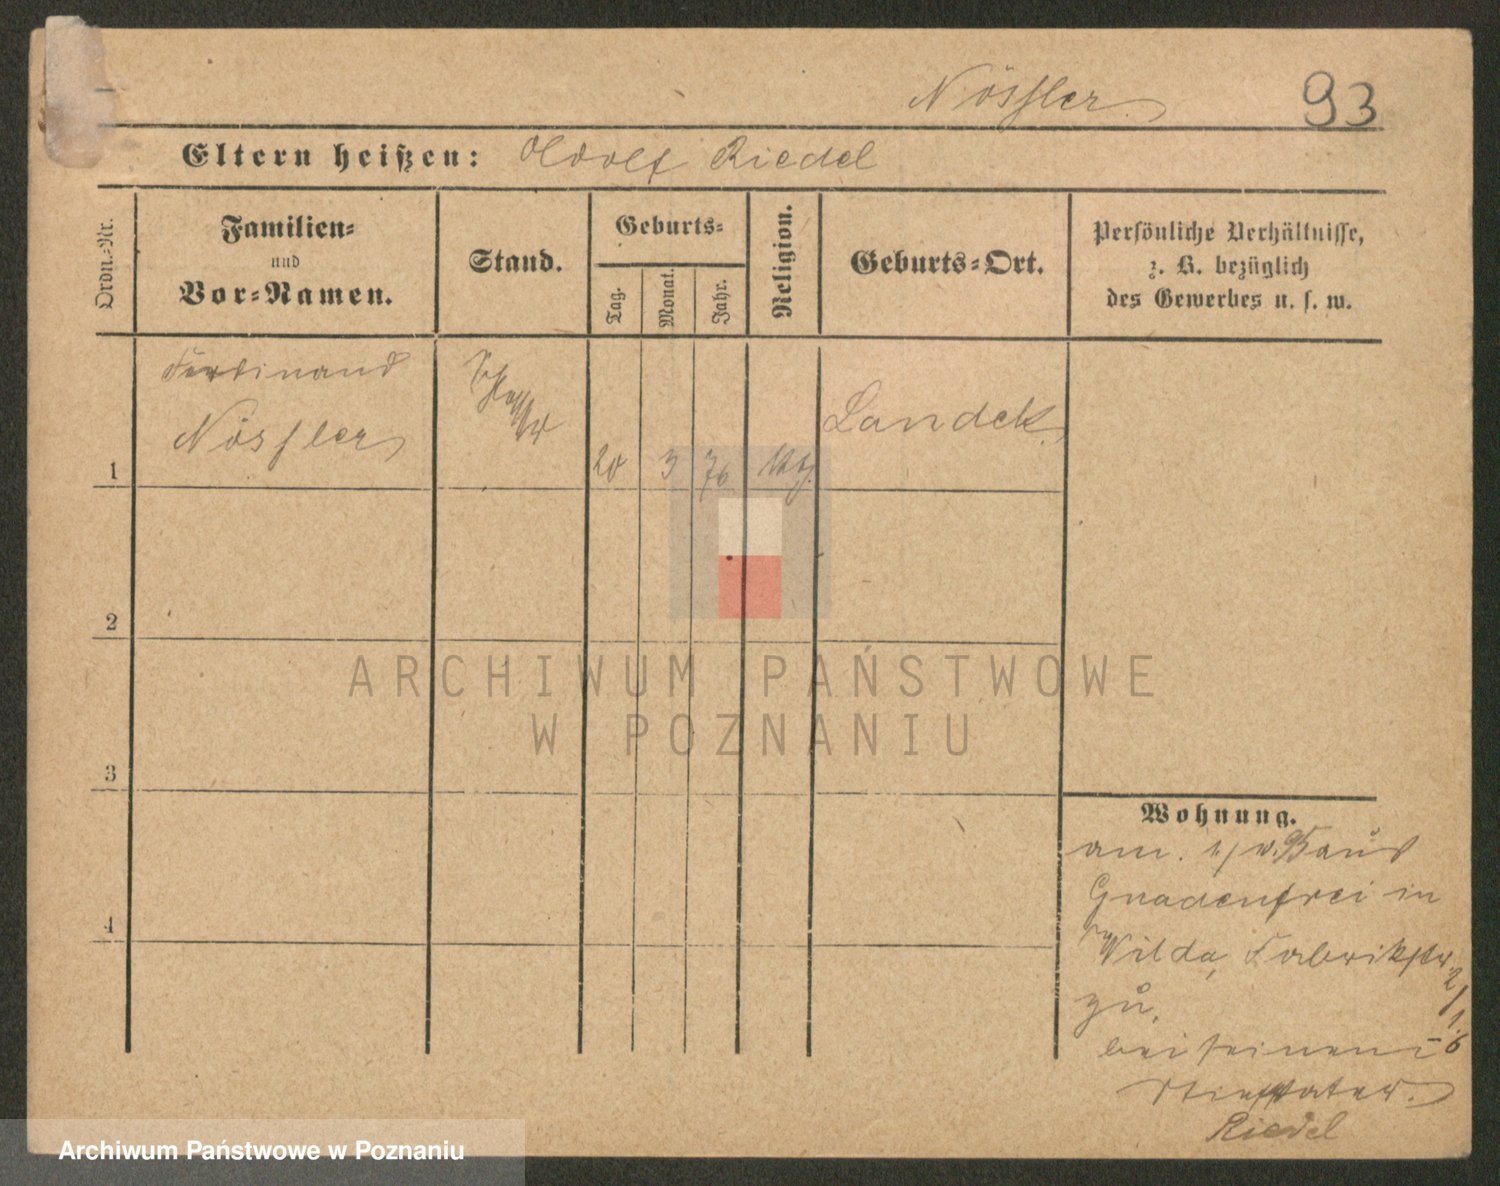 Nössler
93
Eltern heißen: Adolf Riedel
Ordn.-Nr.
Familien-
und
Vor-Namen.
Stand.
Geburts-
Tag.
Monat.
Jahr.
Religion.
Geburts-Ort.
Persönliche Verhältnisse,
z. B. bezüglich
des Gewerbes u. s. w.
Ferdinand
Nössler
Schlosser
1
20
3
76
Landek
2
3
4
Wohnung.
am.
Gnadenfrei in
Wilda, Fabrikstr.
zu,
bei seinem
Stiefvater.
Riedel
ARCHIWUM PAŃSTWOWE
W POZNANIU
Archiwum Państwowe w Poznaniu